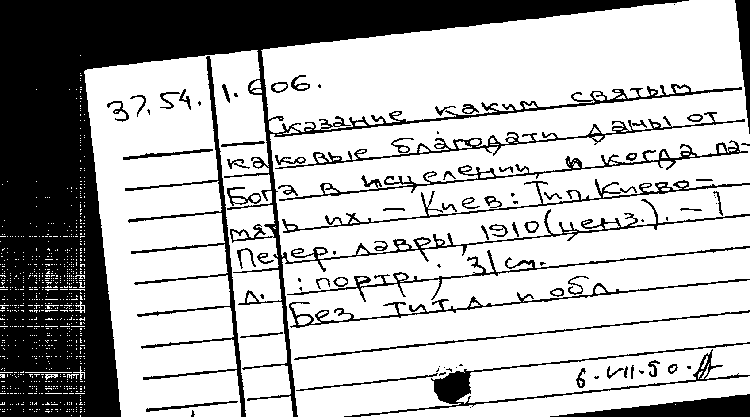 37.54. 1.606.
Сказание каким святым
каковые благодати даны от
Бога в исцелении, и когда па-
мять их. – Киев: Тип. Киево-
Печер. лавры, 1910 (ценз.). – 1
л. : портр. ; 31 см.
Без тит. л. и обл.
6.VII.50.